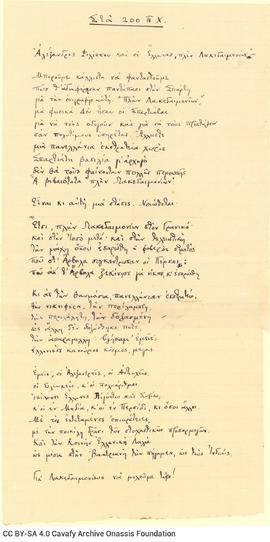 Στα 200 π.Χ.
«Αλέξανδρος Φιλίππου και οι Έλληνες πλην Λακεδαιμονίων»
Μπορούμε κάλλιστα να φαντασθούμε
πως θ' αδιαφόρησαν παντάπασι στην Σπάρτη
για την επιγραφήν αυτή. «Πλην Λακεδαιμονίων»,
μα φυσικά. Δεν ήσαν οι Σπαρτιάται
για να τους οδηγούν και για να τους προστάζουν
σαν πολυτίμους υπηρέτας. Άλλωστε
μια πανελλήνια εκστρατεία χωρίς
Σπαρτιάτη βασιλέα γι' αρχηγό
δεν θα τους φαίνονταν πολλής περιωπής.
Α βεβαιότατα «πλην Λακεδαιμονίων».
Είναι κι αυτή μια στάσις. Νοιώθεται.
Έτσι, πλην Λακεδαιμονίων στον Γρανικό·
και στην Ισσό μετά· και στην τελειωτική
την μάχη, όπου εσαρώθη ο φοβερός στρατός
που στ' Άρβηλα συγκέντρωσαν οι Πέρσαι:
που απ' τ' Άρβηλα ξεκίνησε για νίκην, κ' εσαρώθη.
Κι απ' την θαυμάσια πανελλήνιαν εκστρατεία,
την νικηφόρα, την περίλαμπρη,
την περιλάλητη, την δοξασμένη
ως άλλη δεν δοξάσθηκε καμιά,
την απαράμιλλη: βγήκαμ' εμείς·
ελληνικός καινούριος κόσμος, μέγας.
Εμείς· οι Αλεξανδρείς, οι Αντιοχείς,
οι Σελευκείς, κ' οι πολυάριθμοι
επίλοιποι Έλληνες Αιγύπτου και Συρίας,
κ' οι εν Μηδία, κ' οι εν Περσίδι, κι όσοι άλλοι.
Με τες εκτεταμένες επικράτειες,
με την ποικίλη δράσι των στοχαστικών προσαρμογών.
Και την Κοινήν Ελληνική Λαλιά
ώς μέσα στην Βακτριανή την πήγαμεν, ώς τους Ινδούς.
Για Λακεδαιμονίους να μιλούμε τώρα!
CC BY-SA 4.0 Cavafy Archive Onassis Foundation